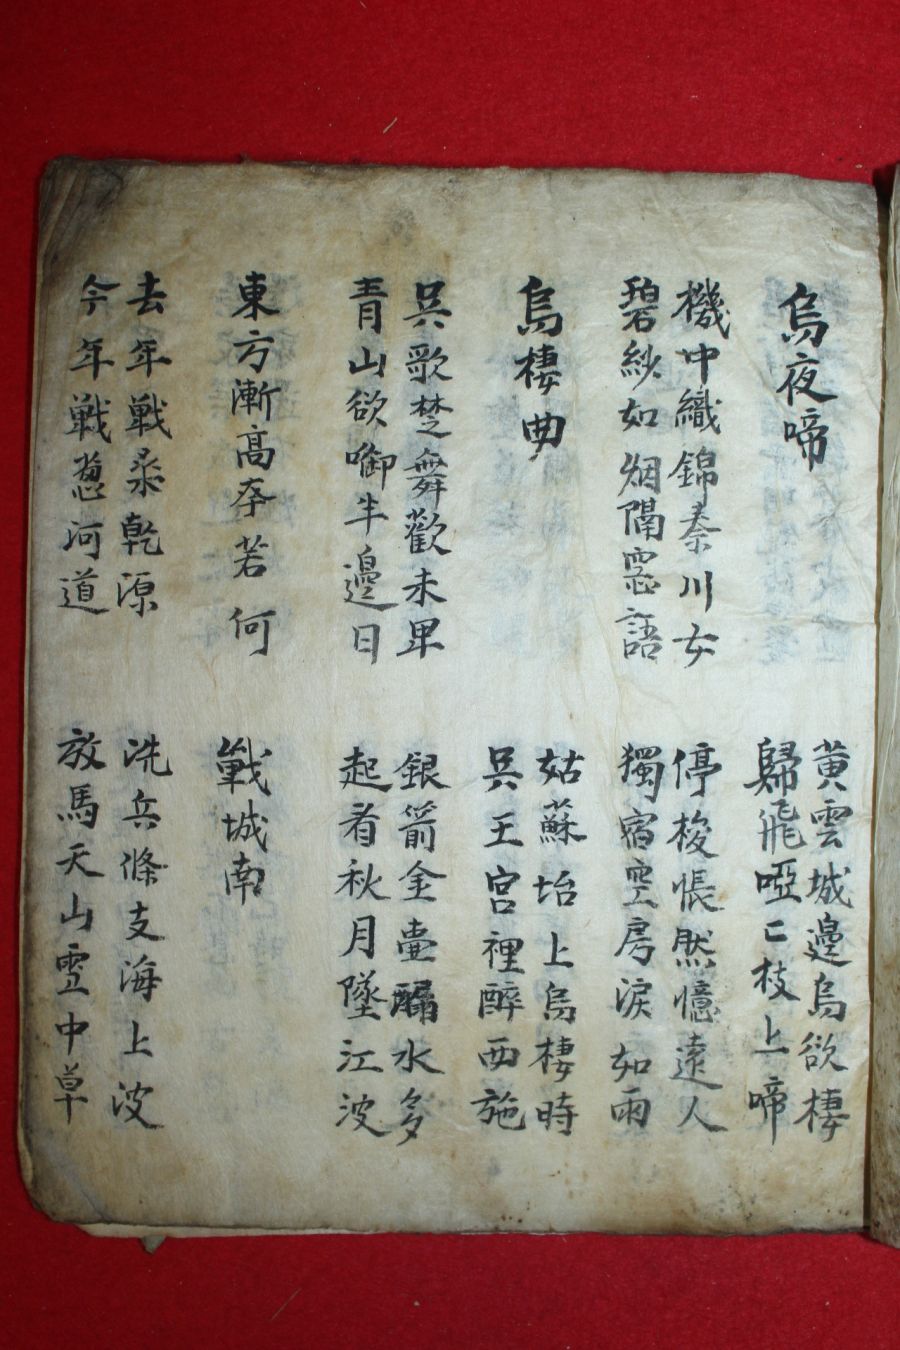 烏夜啼
黃雲城邊烏欲棲
歸飛啞〻枝上啼
機中織錦秦川女
碧紗如烟隔窓語
停梭悵然憶遠人
獨宿空房淚如雨
烏棲曲
姑蘇坮上烏棲時
吳王宮裡醉西施
吳歌楚舞歡未畢
青山欲啣半邊日
銀箭金壺漏水多
起看秋月墜江波
東方漸高奈若何
戰城南
去年戰桑乾源
今年戰葱河道
洗兵條支海上波
放馬天山雪中草